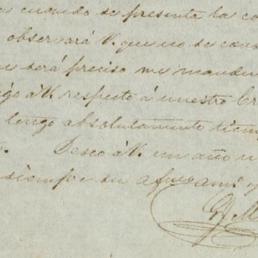 cuando se presenta la co
observará V. que no se cono
será preciso me mande
V. respecto á nuestro
tengo absolutamente tiem
Deseo á V. un año
siempre su afmo. ami